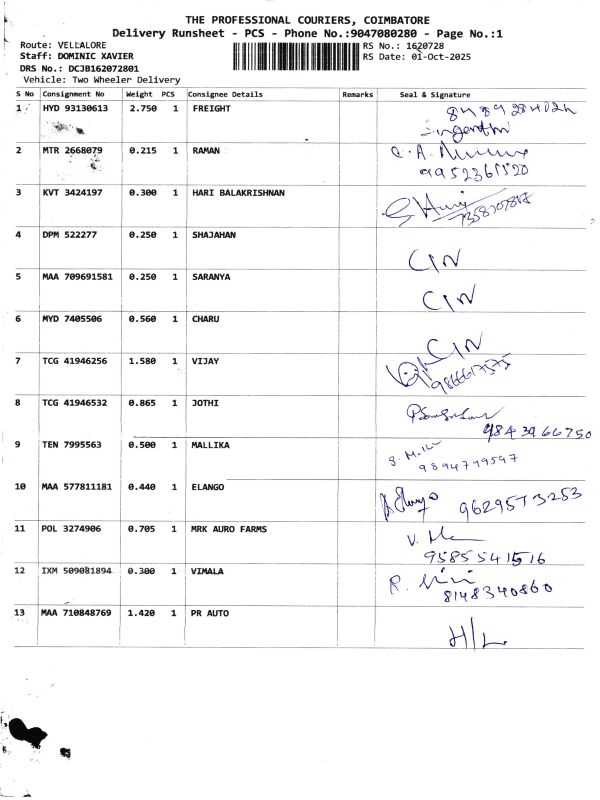 THE PROFESSIONAL COURIERS, COIMBATORE
Delivery Runsheet - PCS - Phone No.:9047080280 - Page No.:1
Route: VELLALORE RS No.: 1620728
Staff: DOMINIC XAVIER RS Date: 01-Oct-2025
DRS No.: DCJB162072801
Vehicle: Two Wheeler Delivery
S No Consignment No Weight PCS Consignee Details Remarks Seal & Signature
1 HYD 93130613 2.750 1 FREIGHT
2 MTR 2668079 0.215 1 RAMAN
3 KVT 3424197 0.300 1 HARI BALAKRISHNAN
4 DPM 522277 0.250 1 SHAJAHAN
CIN
5 MAA 709691581 0.250 1 SARANYA
CIN
6 MYD 7405506 0.560 1 CHARU
CIN
7 TCG 41946256 1.580 1 VIJAY
8 TCG 41946532 0.865 1 JOTHI
9843966750
9 TEN 7995563 0.500 1 MALLIKA
9894779597
10 MAA 577811181 0.440 1 ELANGO
9629573253
11 POL 3274906 0.705 1 MRK AURO FARMS
9585541516
12 IXM 509081894 0.300 1 VIMALA
8148340860
13 MAA 710848769 1.420 1 PR AUTO
H/L